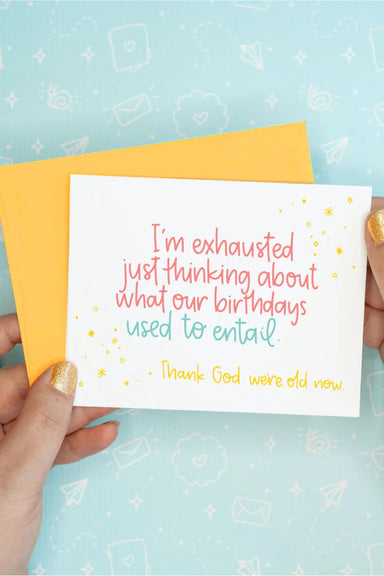 I'm exhausted
just thinking about
what our birthdays
used to entail.
Thank God we're old now.